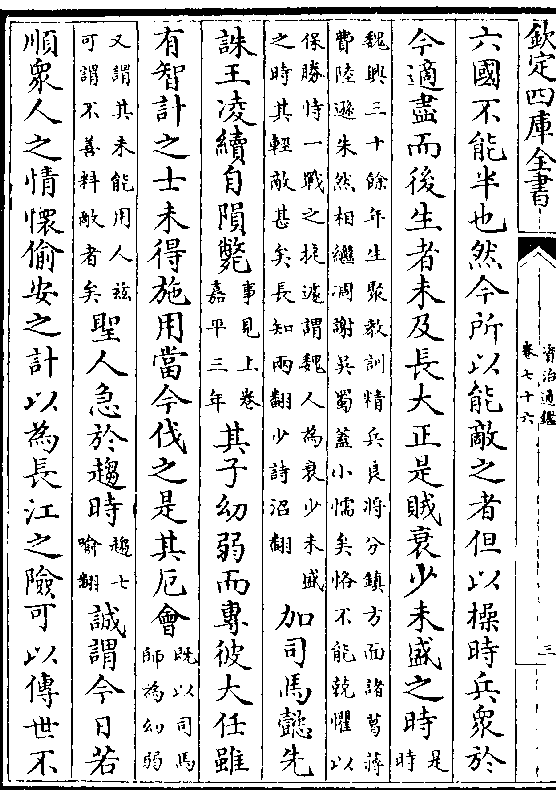 欽定四庫全書
資治通鑑
卷七十六
三
六國不能半也然今所以能敵之者但以操時兵衆於
今適盡而後生者未及長大正是賊衰少未盛之時是時
魏興三十餘年生聚教訓精兵良將分鎮方面諸葛蔣
費陸遜朱然相繼凋謝吳蜀蓋小懦矣恪不能兢懼以
保勝恃一戰之捷遽謂魏人為衰少未盛
之時其輕敵甚矣長知兩翻少詩沼翻
加司馬懿先
誅王凌續自隕斃事見上卷嘉平三年其子幼弱而專彼大任雖
有智計之士未得施用當今伐之是其厄會既以司馬師為幼弱
又謂其未能用人兹
可謂不善料敵者矣
聖人急於趨時趨七喻翻誠謂今日若
順衆人之情懷偷安之計以為長江之險可以傳世不